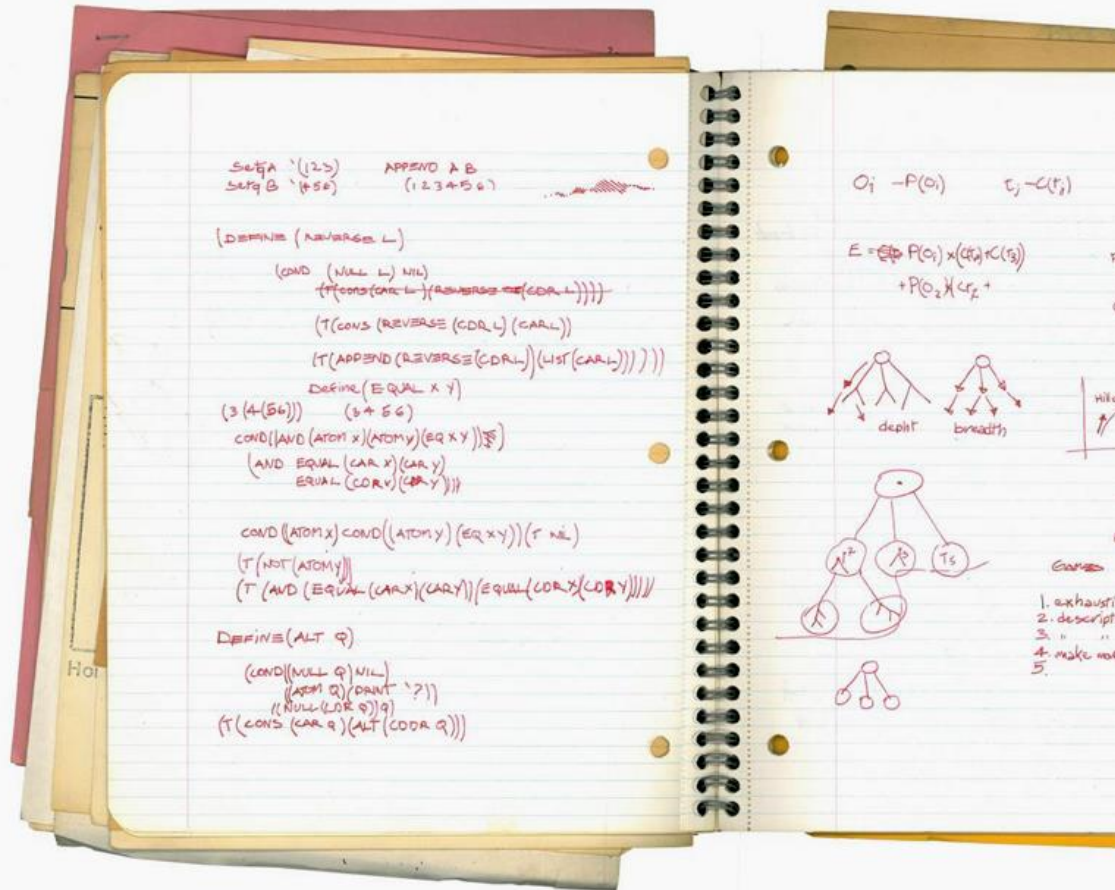 SetqA '(123) APPEND A B
Setq B '(456) (123456)
(DEFINE (REVERSE L)
(COND (NULL L) NIL)
(T(CONS(CAR L)(REVERSE (CDR L))))
(T(CONS (REVERSE (CDR L) (CAR L))
(T(APPEND (REVERSE (CDR L)) (LIST (CAR L))))))
Define (EQUAL X Y)
(3 (4 (56))) (3456)
COND((AND (ATOM X)(ATOM Y)(EQ X Y))
(AND EQUAL (CAR X)(CAR Y)
EQUAL (CDR X)(CDR Y))))
COND((ATOM X) COND((ATOM Y) (EQ X Y)) (T NIL)
(T (NOT (ATOM Y))
(T (AND (EQUAL (CAR X)(CAR Y)) (EQUAL (CDR X)(CDR Y)))))
DEFINE (ALT Q)
(COND((NULL Q) NIL)
((ATOM Q)(PRINT '?))
((NULL (CDR Q)) Q)
(T (CONS (CAR Q) (ALT (CDDR Q)))
Hor
Oi - P(Oi) rj - C(rj)
E = P(Oi) x
+ P(O2)
depht breadth
Hill
R
T3
GAMES
1. exhausti
2. descript
3. " "
4. make
5.